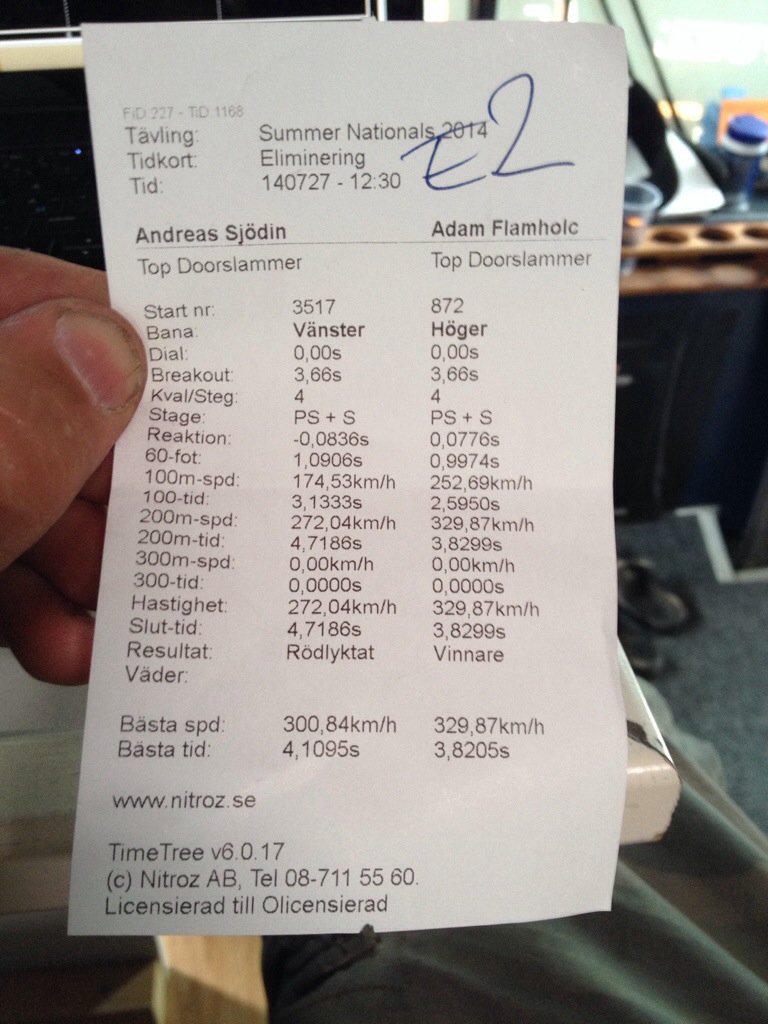 FiD:227 - TiD:1168
Tävling: Summer Nationals 2014
Tidkort: Eliminering
Tid: 140727 - 12:30
E2
Andreas Sjödin Adam Flamholc
Top Doorslammer Top Doorslammer
Start nr: 3517 872
Bana: Vänster Höger
Dial: 0,00s 0,00s
Breakout: 3,66s 3,66s
Kval/Steg: 4 4
Stage: PS + S PS + S
Reaktion: -0,0836s 0,0776s
60-fot: 1,0906s 0,9974s
100m-spd: 174,53km/h 252,69km/h
100-tid: 3,1333s 2,5950s
200m-spd: 272,04km/h 329,87km/h
200m-tid: 4,7186s 3,8299s
300m-spd: 0,00km/h 0,00km/h
300-tid: 0,0000s 0,0000s
Hastighet: 272,04km/h 329,87km/h
Slut-tid: 4,7186s 3,8299s
Resultat: Rödlyktat Vinnare
Väder:
Bästa spd: 300,84km/h 329,87km/h
Bästa tid: 4,1095s 3,8205s
www.nitroz.se
TimeTree v6.0.17
(c) Nitroz AB, Tel 08-711 55 60.
Licensierad till Olicensierad